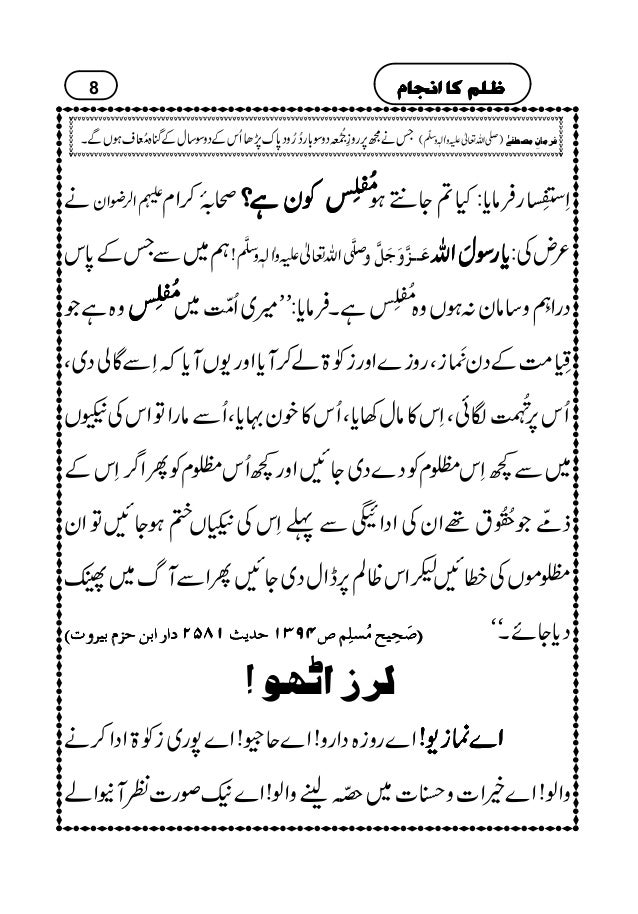 ظلم کا انجام
8
فرمانِ مصطفےٰ (صلی اللہ تعالیٰ علیہ والہ وسلّم) جس نے مجھ پر روزِ جُمُعہ دو سو بار دُرُود پاک پڑھا اُس کے دو سو سال کے گناہ مُعاف ہوں گے۔
اِستِفسار فرمایا: کیا تم جانتے ہو مُفلِس کون ہے؟ صحابۂ کرام علیہم الرضوان نے
عرض کی: یا رسولَ اللہ عَزَّوَجَلَّ وصلَّی اللہ تعالٰی علیہ واٰلہٖ وسلَّم! ہم میں سے جس کے پاس
دراہم و سامان نہ ہوں وہ مُفلِس ہے۔ فرمایا: ’’میری اُمّت میں مُفلِس وہ ہے جو
قِیامت کے دن نَماز، روزے اور زکوٰۃ لے کر آیا اور یوں آیا کہ اِسے گالی دی،
اُس پر تُہمت لگائی، اِس کا مال کھایا، اُس کا خون بہایا، اُسے مارا تو اس کی نیکیوں
میں سے کچھ اِس مظلوم کو دے دی جائیں اور کچھ اُس مظلوم کو پھر اگر اِس کے
ذمّے جو حُقُوق تھے ان کی ادائیگی سے پہلے اِس کی نیکیاں ختم ہوجائیں تو ان
مظلوموں کی خطائیں لیکر اس ظالم پر ڈال دی جائیں پھر اسے آگ میں پھینک
دیا جائے۔‘‘ (صَحِیح مُسلِم ص ۱۳۹۴ حدیث ۲۵۸۱ دار ابن حزم بیروت)
لرز اٹھو!
اے نمازیو! اے روزہ دارو! اے حاجیو! اے پوری زکوٰۃ ادا کرنے
والو! اے خیرات و حسنات میں حصّہ لینے والو! اے نیک صورت نظر آنیوالے